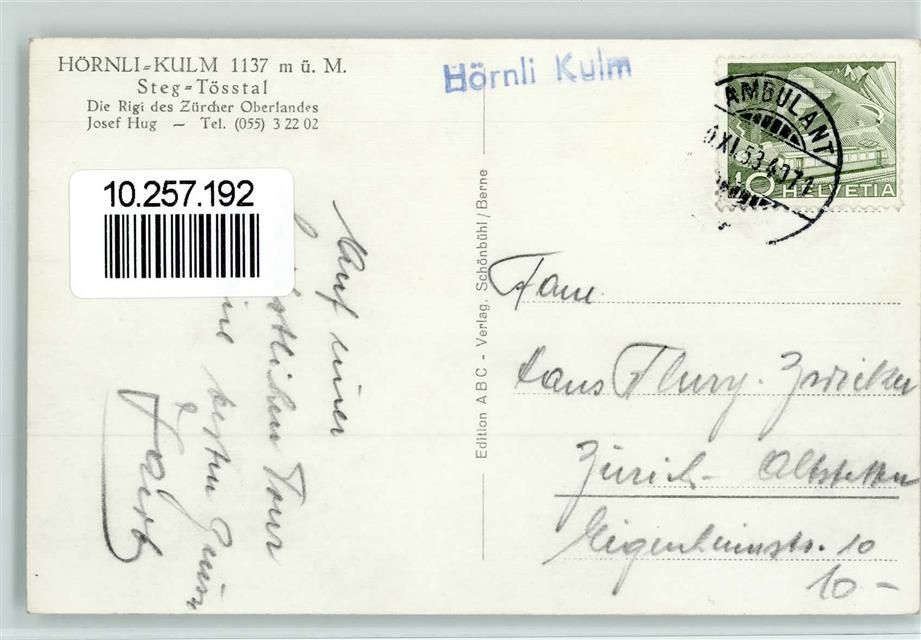 HÖRNLI=KULM 1137 m ü. M.
Steg=Tösstal
Die Rigi des Zürcher Oberlandes
Josef Hug — Tel. (055) 3 22 02
Hörnli Kulm
AMBULANT
XI.53
10 HELVETIA
10.257.192
Auf einer
Tour
Edition ABC - Verlag, Schönbühl/Berne
Fam.
Hans Flury-Zwicker
Zürich-Altstetten
Eigenheimstr. 10
10-